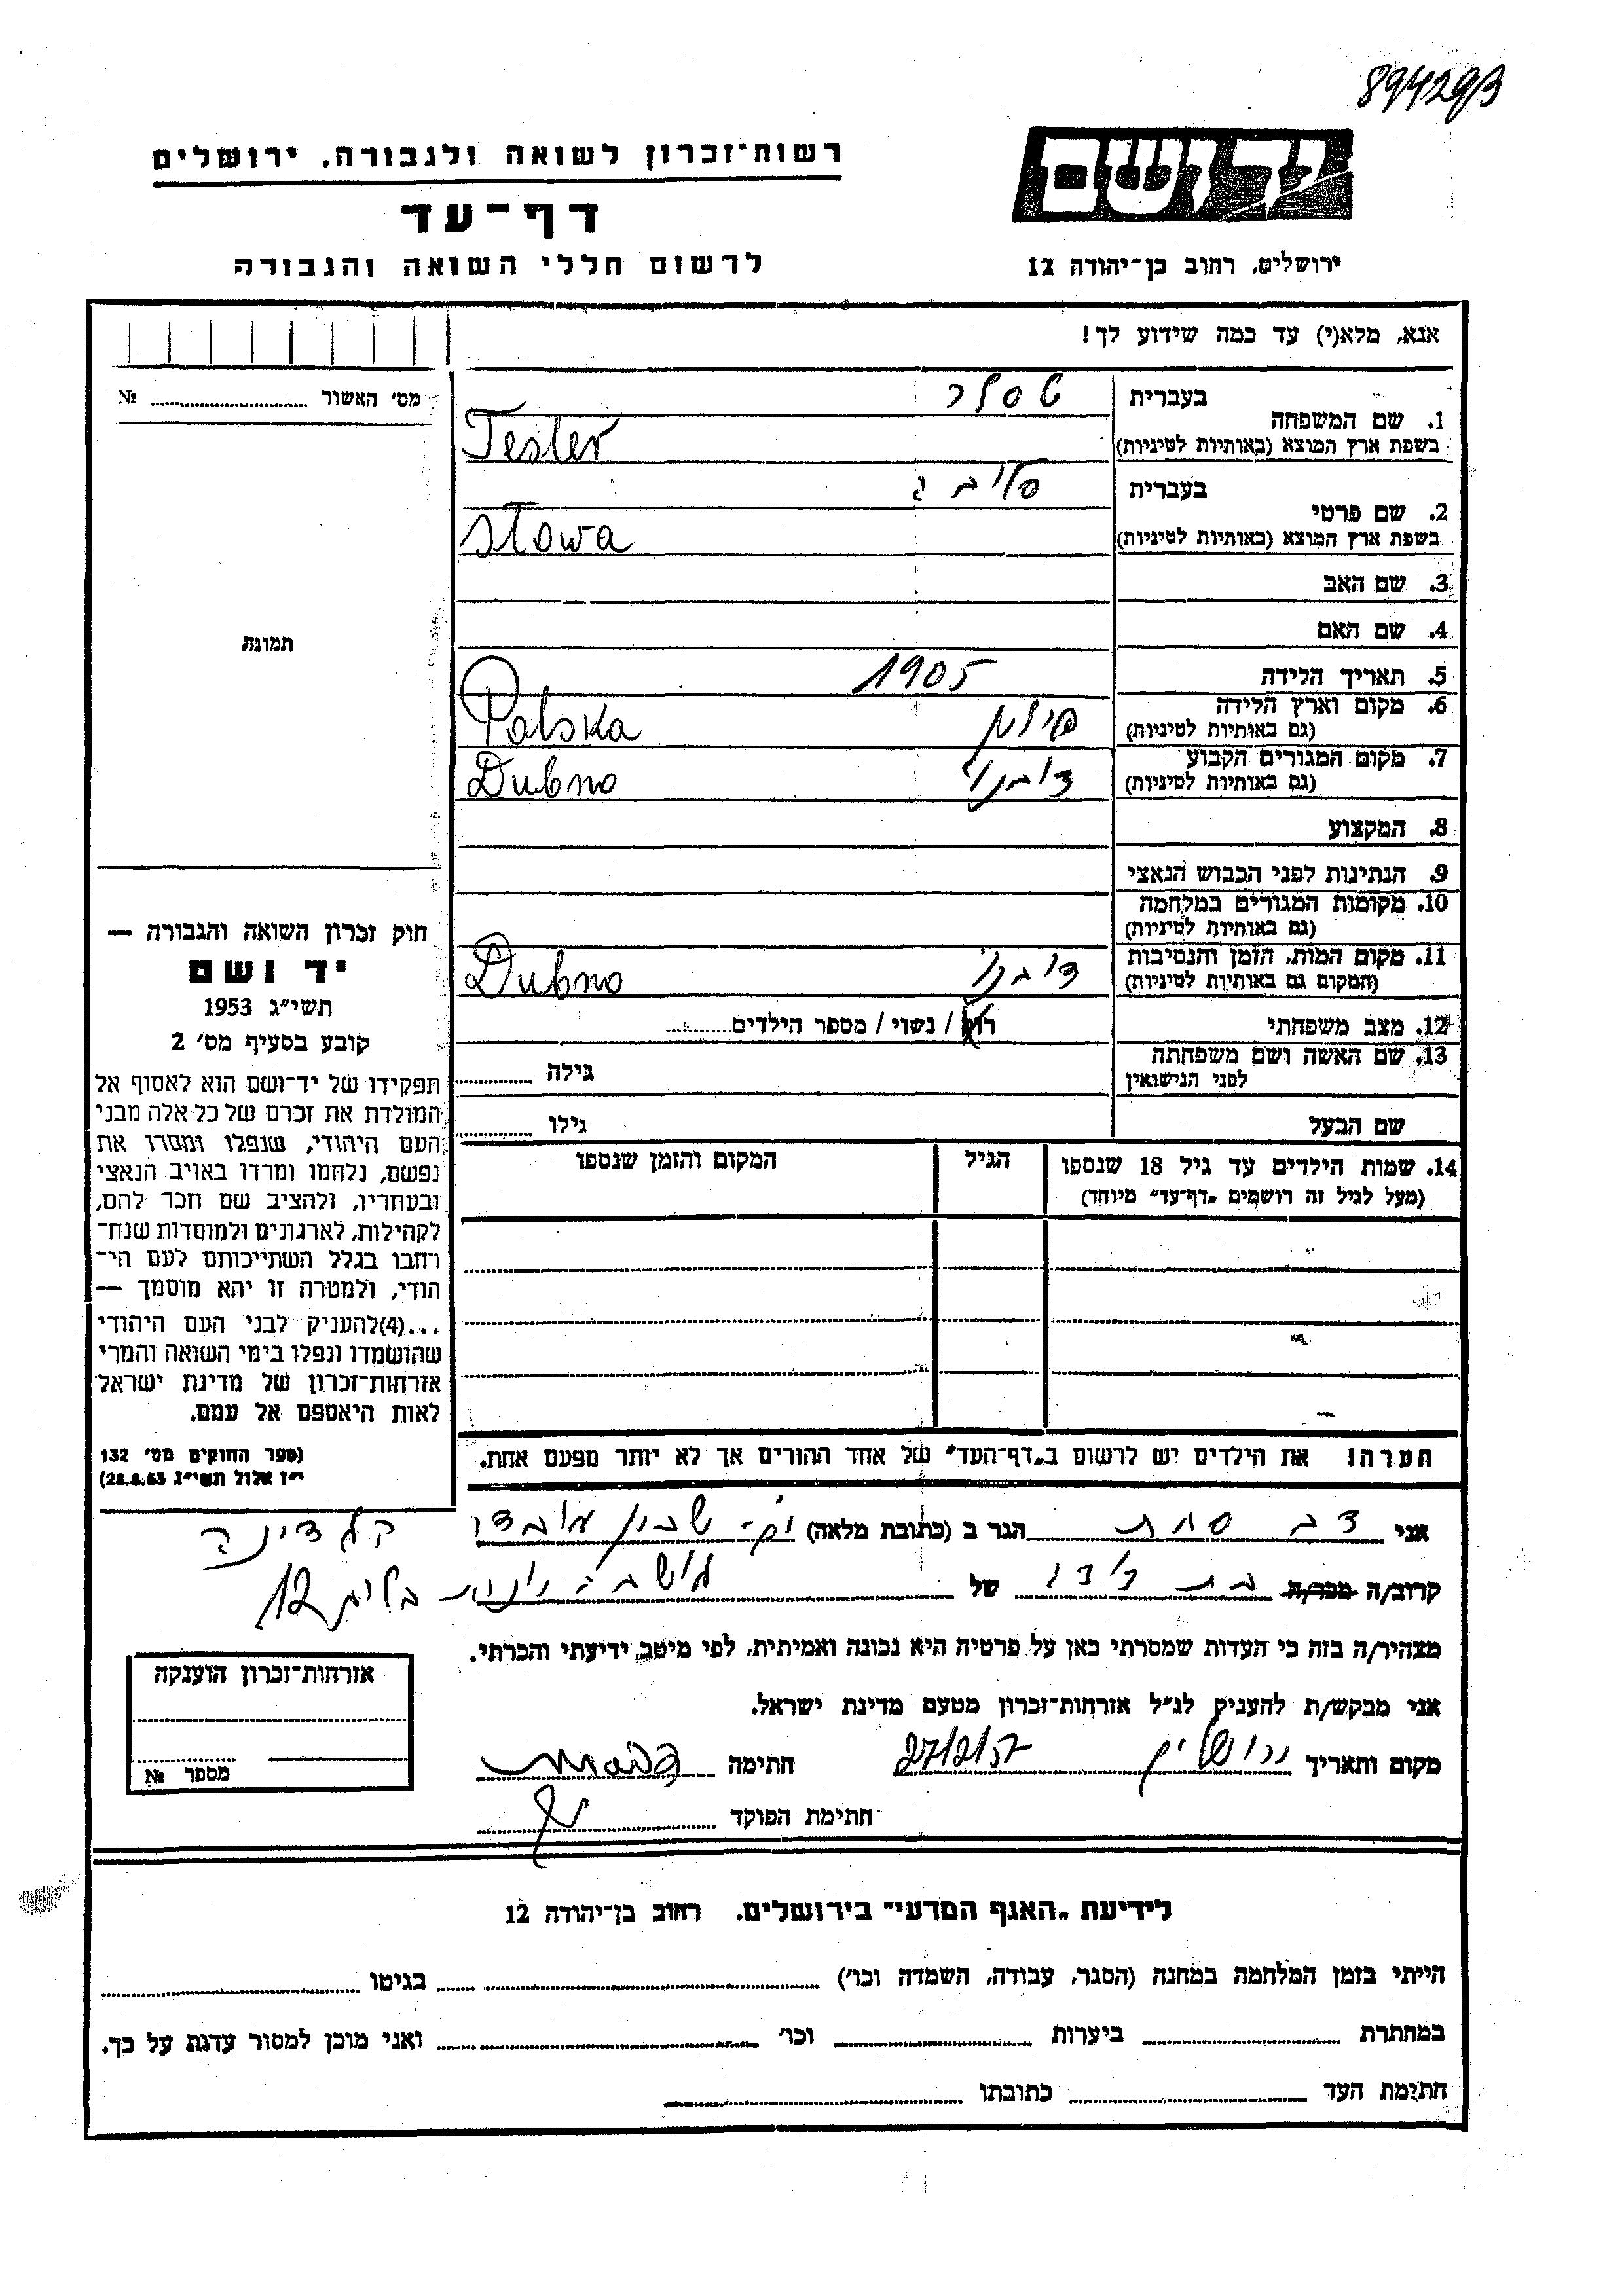 894293
רשות־זכרון לשואה ולגבורה, ירושלים
דף־עד
לרשום חללי השואה והגבורה
יד ושם
ירושלים, רחוב בן־יהודה 12
אנא, מלא(י) עד כמה שידוע לך!
מס׳ האשור № 
1. שם המשפחה
בעברית טסלר
בשפת ארץ המוצא (באותיות לטיניות) Tesler
2. שם פרטי
בעברית
בשפת ארץ המוצא (באותיות לטיניות) Słowa
3. שם האב
4. שם האם
תמונה
5. תאריך הלידה 1905
6. מקום וארץ הלידה פולין
(גם באותיות לטיניות) Polska
7. מקום המגורים הקבוע דובנו
(גם באותיות לטיניות) Dubno
8. המקצוע
9. הנתינות לפני הכבוש הנאצי
10. מקומות המגורים במלחמה
(גם באותיות לטיניות)
11. מקום המות, הזמן והנסיבות דובנו
(המקום גם באותיות לטיניות) Dubno
12. מצב משפחתי רוק / נשוי / מספר הילדים
13. שם האשה ושם משפחתה
לפני הנישואין גילה
שם הבעל גילו
14. שמות הילדים עד גיל 18 שנספו הגיל המקום והזמן שנספו
(מעל לגיל זה רושמים „דף־עד״ מיוחד)
חוק זכרון השואה והגבורה —
יד ושם
תשי״ג 1953
קובע בסעיף מס׳ 2
תפקידו של יד־ושם הוא לאסוף אל
המולדת את זכרם של כל אלה מבני
העם היהודי, שנפלו ומסרו את
נפשם, נלחמו ומרדו באויב הנאצי
ובעוזריו, ולהציב שם וזכר להם,
לקהילות, לארגונים ולמוסדות שנח־
רבו בגלל השתייכותם לעם הי־
הודי, ולמטרה זו יהא מוסמך —
...(4)להעניק לבני העם היהודי
שהושמדו ונפלו בימי השואה והמרי
אזרחות־זכרון של מדינת ישראל
לאות היאספם אל עמם.
(ספר החוקים מס׳ 132
י״ז אלול תשי״ג 28.8.53)
הערה! את הילדים יש לרשום ב„דף־העד״ של אחד ההורים אך לא יותר מפעם אחת.
אני דב הגר ב (כתובת מלאה) שכון
קרוב/ה מכר/ה בת דודה של
12
מצהיר/ה בזה כי העדות שמסרתי כאן על פרטיה היא נכונה ואמיתית, לפי מיטב ידיעתי והכרתי.
אני מבקש/ת להעניק לנ״ל אזרחות־זכרון מטעם מדינת ישראל.
מקום ותאריך ירושלים 27/2/57 חתימה
חתימת הפוקד
אזרחות־זכרון הוענקה
מספר №
לידיעת „האגף המדעי״ בירושלים, רחוב בן־יהודה 12
הייתי בזמן המלחמה במחנה (הסגר, עבודה, השמדה וכו׳) בגיטו
במחתרת ביערות וכו׳ ואני מוכן למסור עדות על כך.
חתימת העד כתובתו